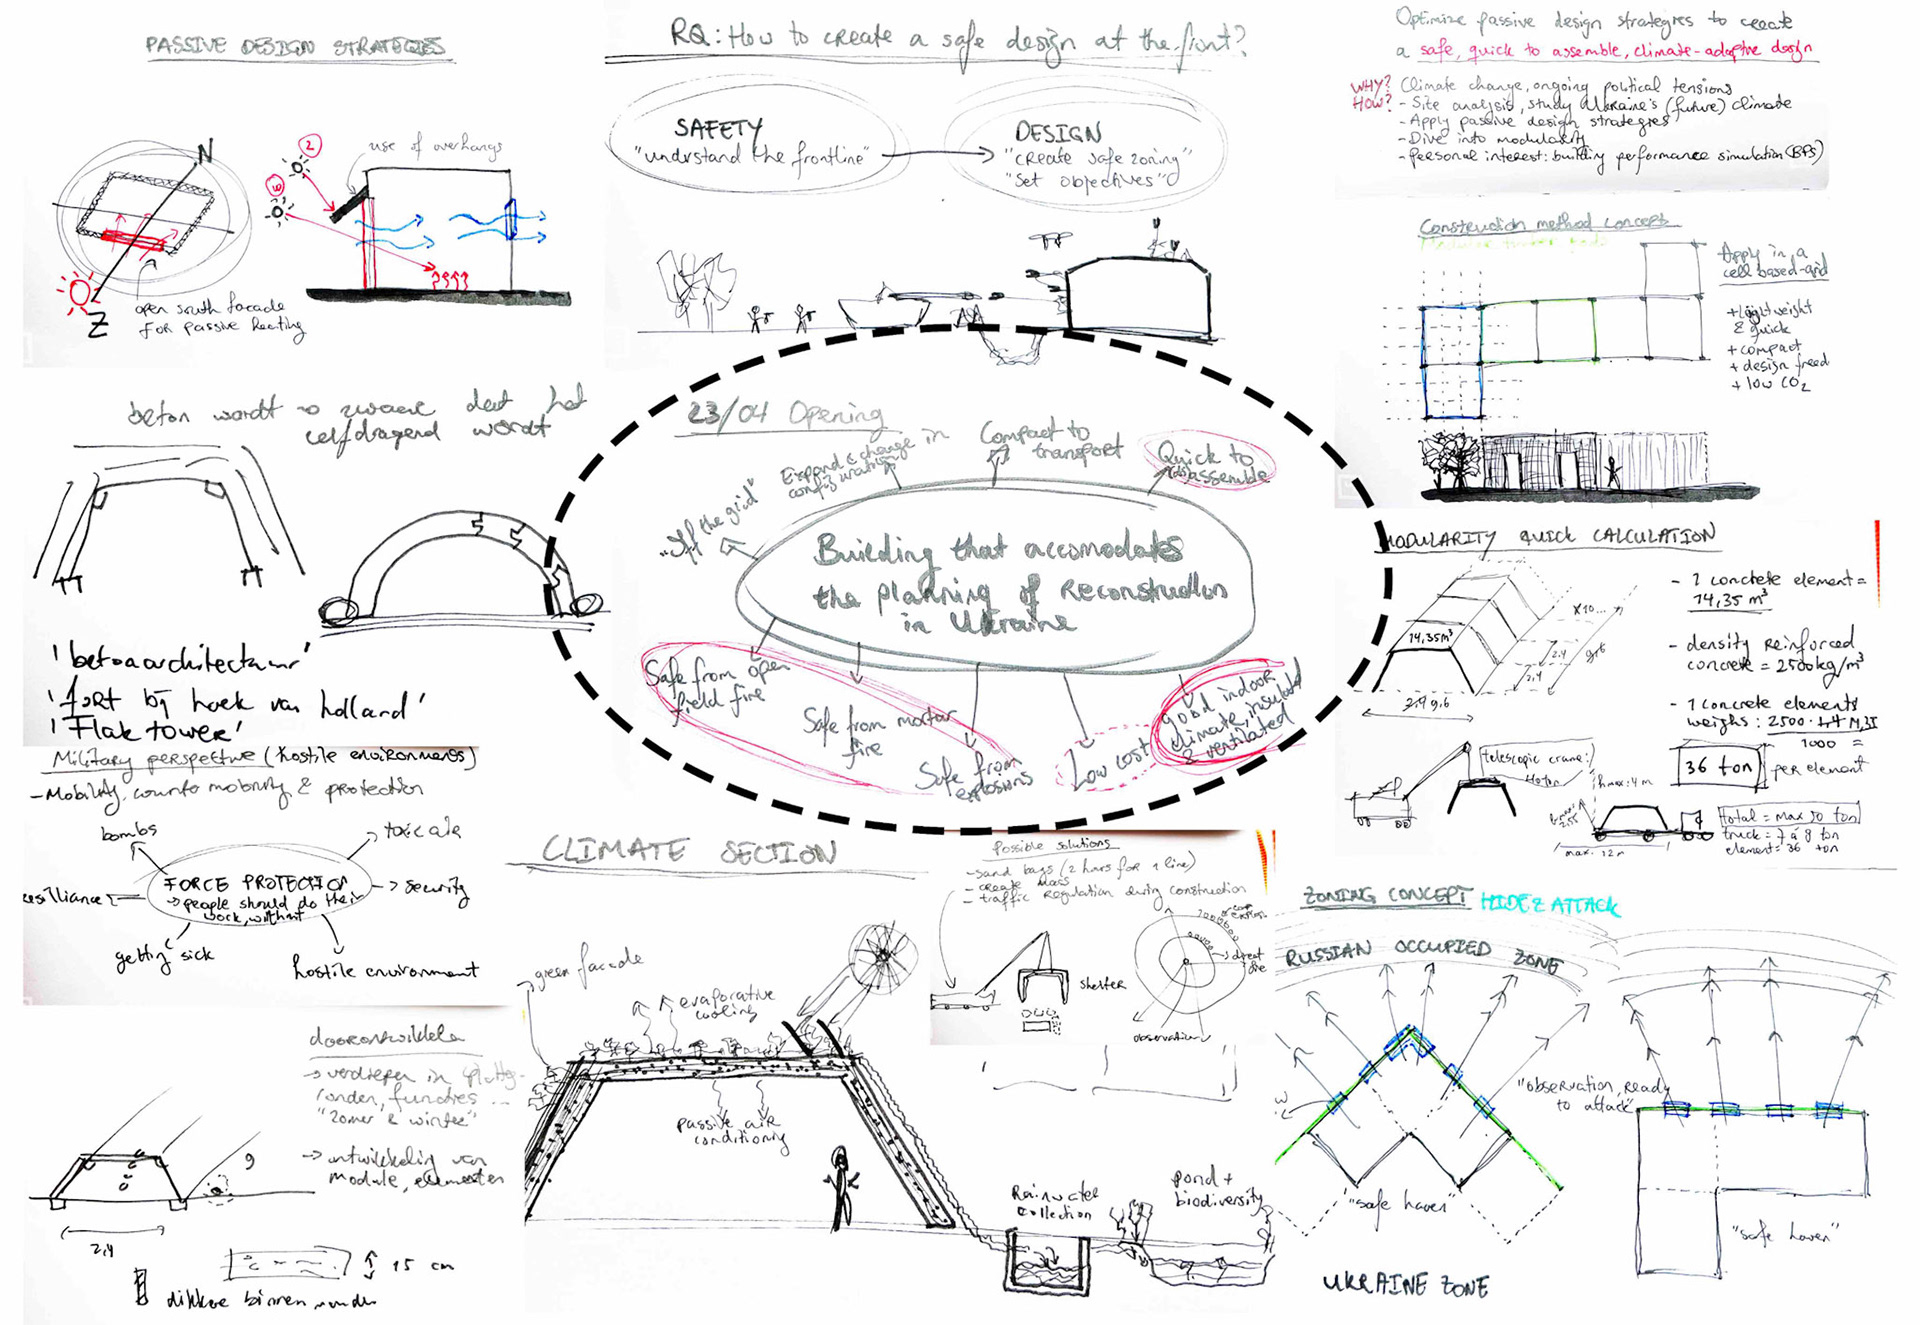 PASSIVE DESIGN STRATEGIES
N
Z
open south facade
for passive heating
2
use of overhangs
RQ: How to create a safe design at the front?
SAFETY
"understand the frontline"
DESIGN
"create safe zoning"
"set objectives"
Optimize passive design strategies to create
a safe, quick to assemble, climate-adaptive design
WHY? Climate change, ongoing political tensions
HOW? - Site analysis, study Ukraine's (future) climate
- Apply passive design strategies
- Dive into modularity
- Personal interest: building performance simulation (BPS)
Construction method concept
Apply in a
cell based-grid
+ Lightweight
& quick
+ compact
+ design freed
+ low CO2
beton wordt → zwaar dat het
zelfdragend wordt
'betonarchitectuur'
'fort bij hoek van holland'
'Flak tower'
23/04 Opening
"off the grid"
Expand & change in
configuration
Compact to
transport
Quick to
(dis)assemble
Building that accomodates
the planning of reconstruction
in Ukraine
Safe from open
field fire
Safe from mortar
fire
Safe from
explosions
Low cost
good indoor
climate, insulated
& ventilated
MODULARITY QUICK CALCULATION
14,35m³
x10...
2.4
2.4
9.6
- 1 concrete element =
14,35 m³
- density reinforced
concrete = 2500kg/m³
- 1 concrete elements
weighs: 2500 · 14,35
1000 =
36 ton per element
telescopic crane:
hmax: 4 m
max. 12 m
total = max 50 ton
truck = 7 à 8 ton
element = 36 ton
Military perspective (hostile environments)
- Mobility, counter mobility & protection
bombs
toxic air
resilliance
FORCE PROTECTION
→ people should do their
work, without
security
getting sick
hostile environment
doorontwikkelen
→ verdiepen in
functies ...
"zomer & winter"
→ ontwikkeling van
module, elementen
2,4
15 cm
dikkere binnenwanden
CLIMATE SECTION
green facade
evaporative
cooling
passive air
conditioning
Rainwater
collection
pond +
biodiversity
Possible solutions
- sand bags (2 hours for 1 line)
- create mass
- traffic regulation during construction
shelter
direct
fire
observation
ZONING CONCEPT HIDE & ATTACK
RUSSIAN OCCUPIED ZONE
"observation, ready
to attack"
"safe haven"
"safe haven"
UKRAINE ZONE